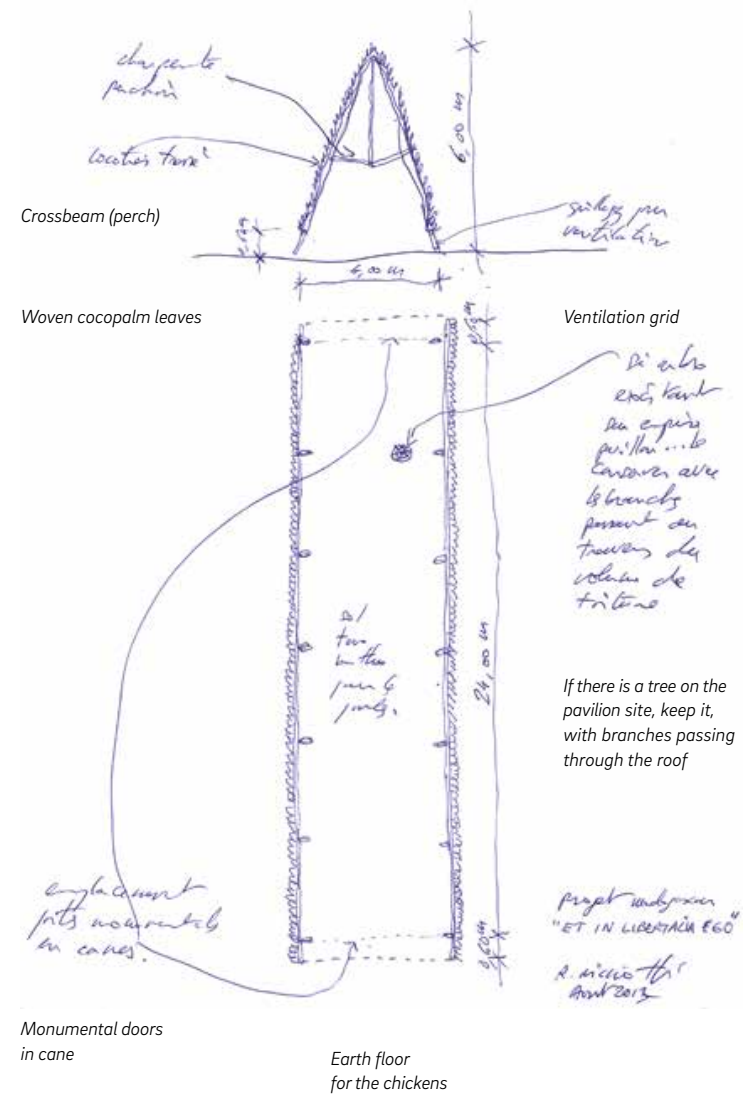 charpente
perchoir
cocotier tressé
Crossbeam (perch)
6,00 m
grillage pour
ventilation
4,00 m
Woven cocopalm leaves
Ventilation grid
Si arbre
existant
pavillon ... le
conserver avec
les branches
passant au
travers du
volume de
toiture
24,00 m
sol
terre
battue
pour les
poules.
If there is a tree on the
pavilion site, keep it,
with branches passing
through the roof
emplacement
monumentales
en cannes.
0,60 m
projet
"ET IN LIBERTALIA EGO"
R. Ricciotti
Août 2013
Monumental doors
in cane
Earth floor
for the chickens